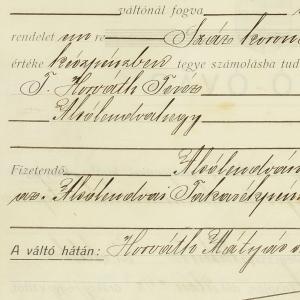 váltónál fogva
rendelet em re Száz koron
értéke készpénzben tegye számolásba tud
T. Horváth Teréz
Alsólendvahegy
Fizetendő Alsólendván
az Alsólendvai Takarékpén
A váltó hátán: Horváth Mátyás